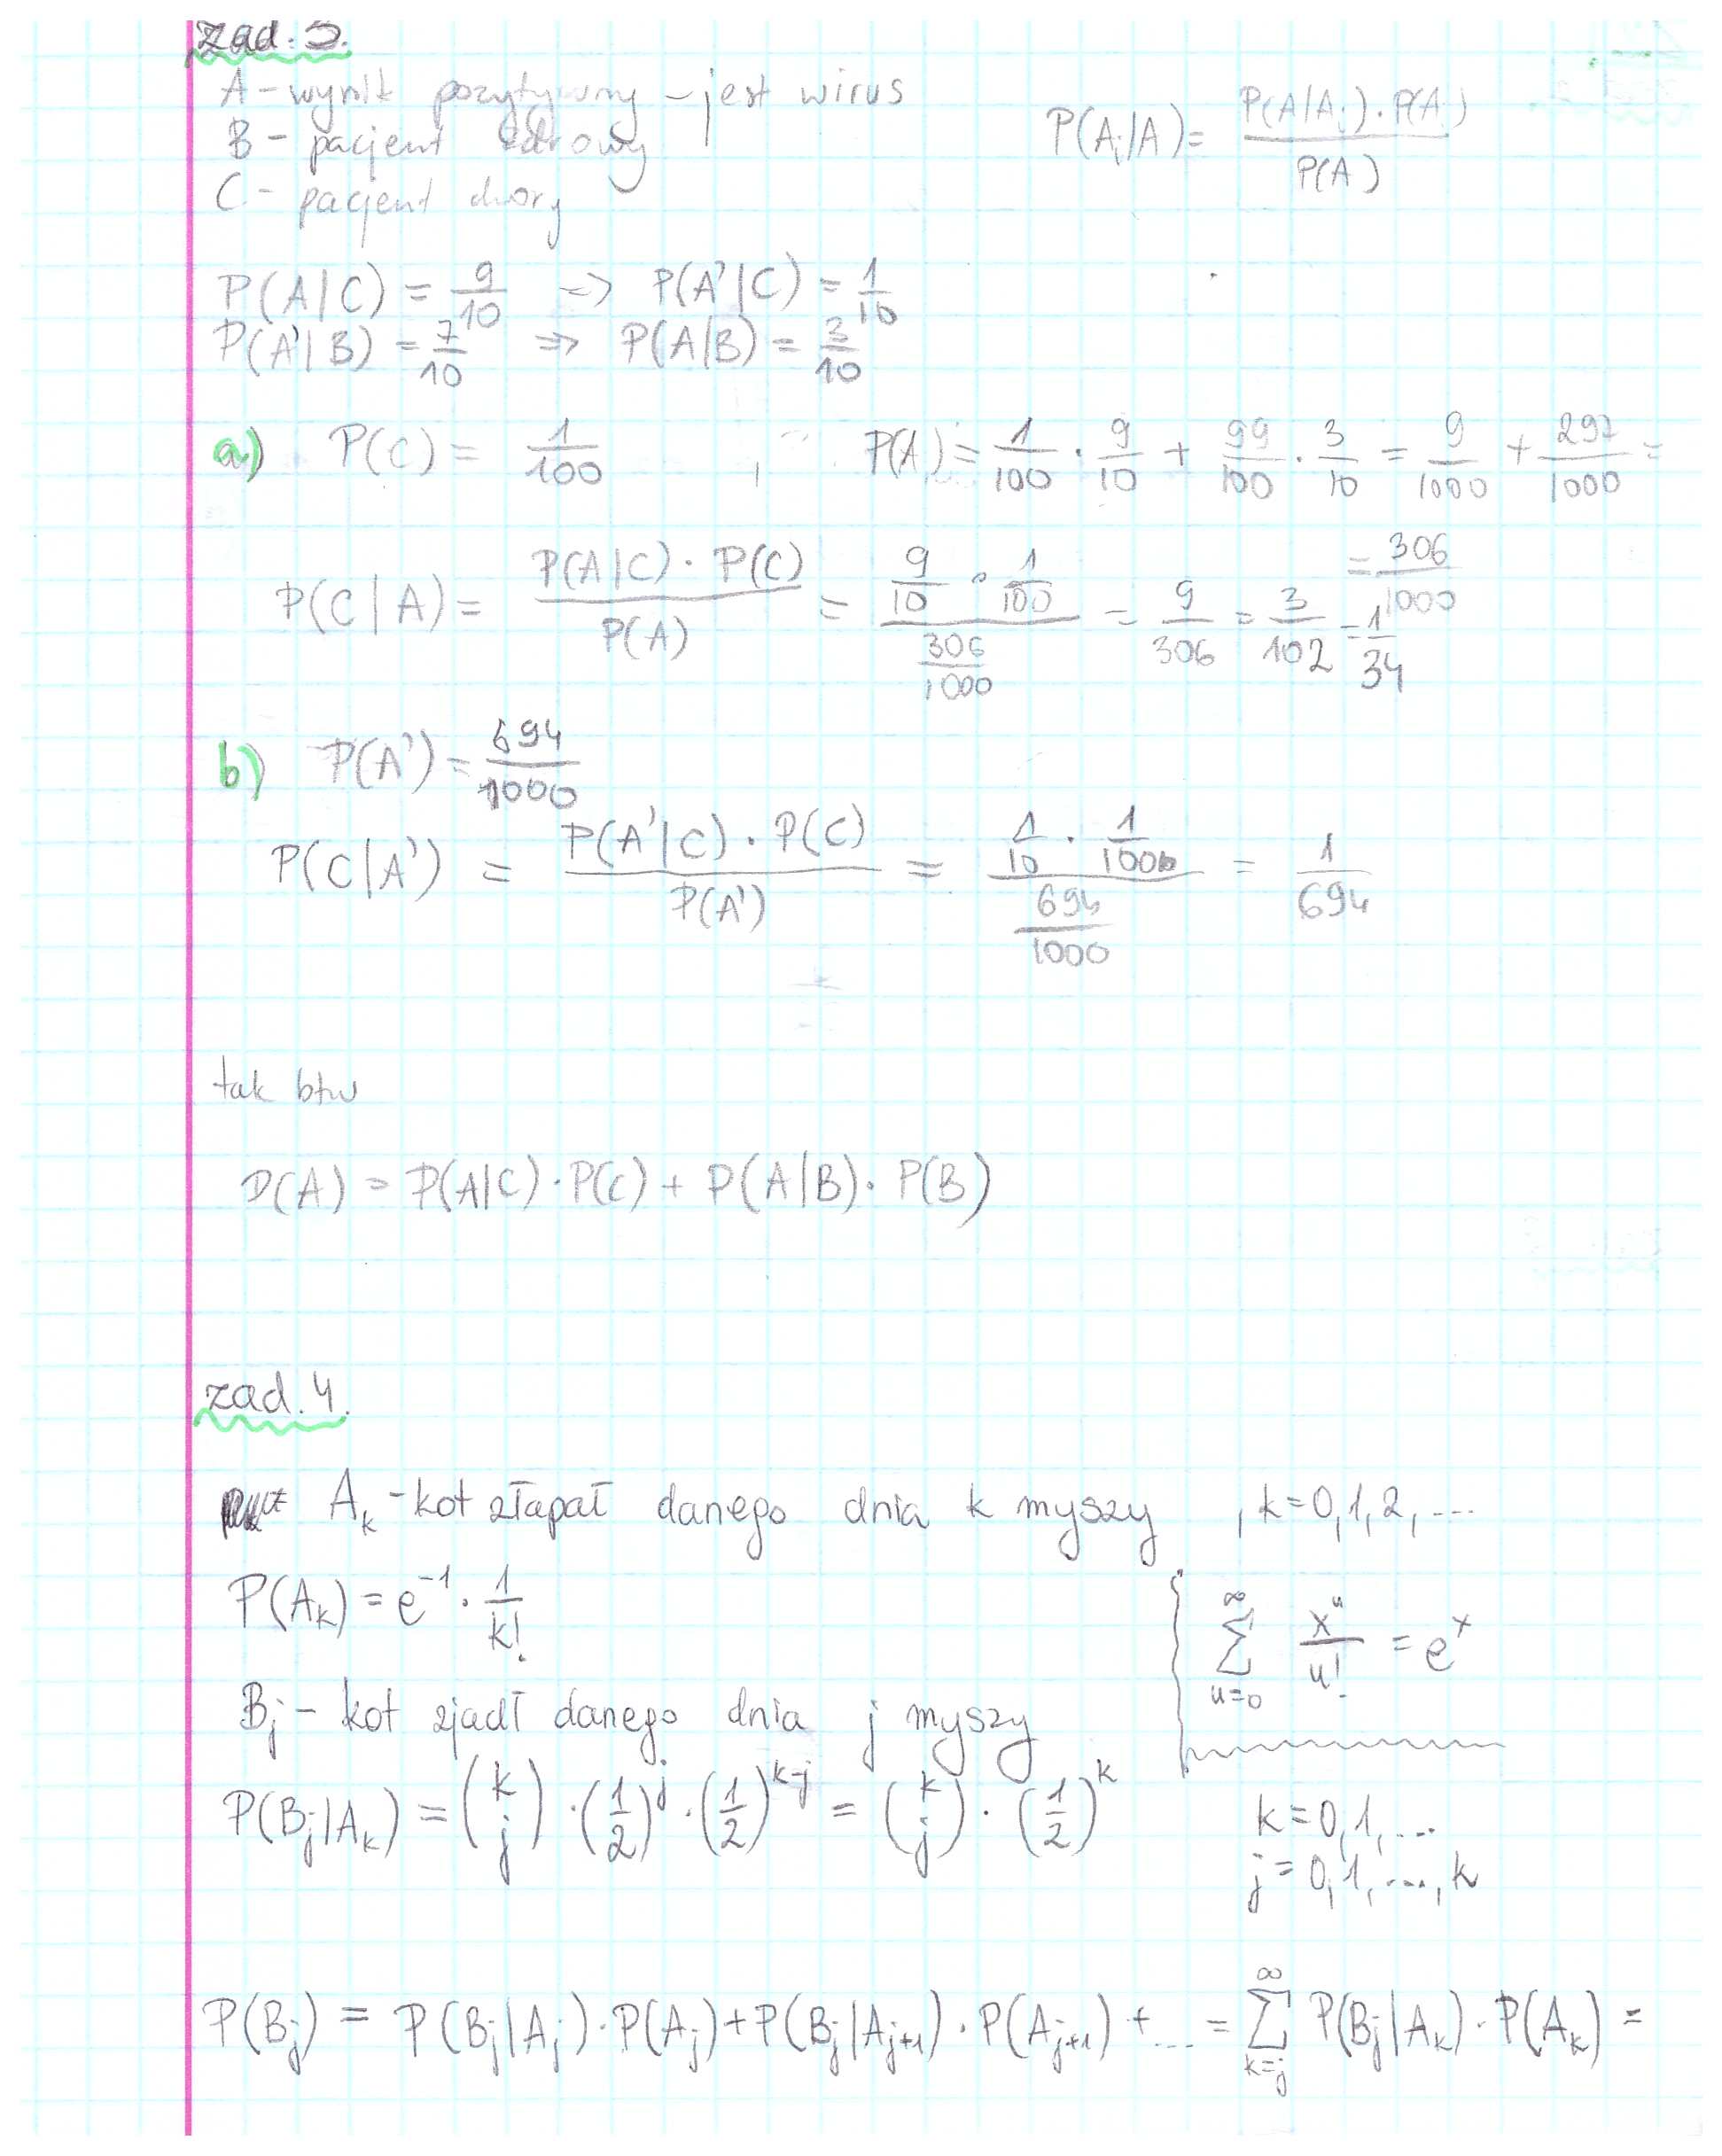 zad. 3.
A - wynik pozytywny - jest wirus
B - pacjent zdrowy
C - pacjent chory
P(A_i|A) = \frac{P(A|A_i) \cdot P(A_i)}{P(A)}
P(A|C) = \frac{9}{10} => P(A'|C) = \frac{1}{10}
P(A'|B) = \frac{7}{10} => P(A|B) = \frac{3}{10}
a) P(C) = \frac{1}{100} , P(A) = \frac{1}{100} \cdot \frac{9}{10} + \frac{99}{100} \cdot \frac{3}{10} = \frac{9}{1000} + \frac{297}{1000} =
= \frac{306}{1000}
P(C|A) = \frac{P(A|C) \cdot P(C)}{P(A)} = \frac{\frac{9}{10} \cdot \frac{1}{100}}{\frac{306}{1000}} = \frac{9}{306} = \frac{3}{102} = \frac{1}{34}
b) P(A') = \frac{694}{1000}
P(C|A') = \frac{P(A'|C) \cdot P(C)}{P(A')} = \frac{\frac{1}{10} \cdot \frac{1}{100}}{\frac{694}{1000}} = \frac{1}{694}
tak btw
P(A) = P(A|C) \cdot P(C) + P(A|B) \cdot P(B)
zad. 4.
A_k - kot złapał danego dnia k myszy , k = 0, 1, 2, ...
P(A_k) = e^{-1} \cdot \frac{1}{k!}
\sum_{n=0}^{\infty} \frac{x^n}{n!} = e^x
B_j - kot zjadł danego dnia j myszy
P(B_j|A_k) = \binom{k}{j} \cdot (\frac{1}{2})^j \cdot (\frac{1}{2})^{k-j} = \binom{k}{j} \cdot (\frac{1}{2})^k
k = 0, 1, ...
j = 0, 1, ..., k
P(B_j) = P(B_j|A_j) \cdot P(A_j) + P(B_j|A_{j+1}) \cdot P(A_{j+1}) + ... = \sum_{k=j}^{\infty} P(B_j|A_k) \cdot P(A_k) =